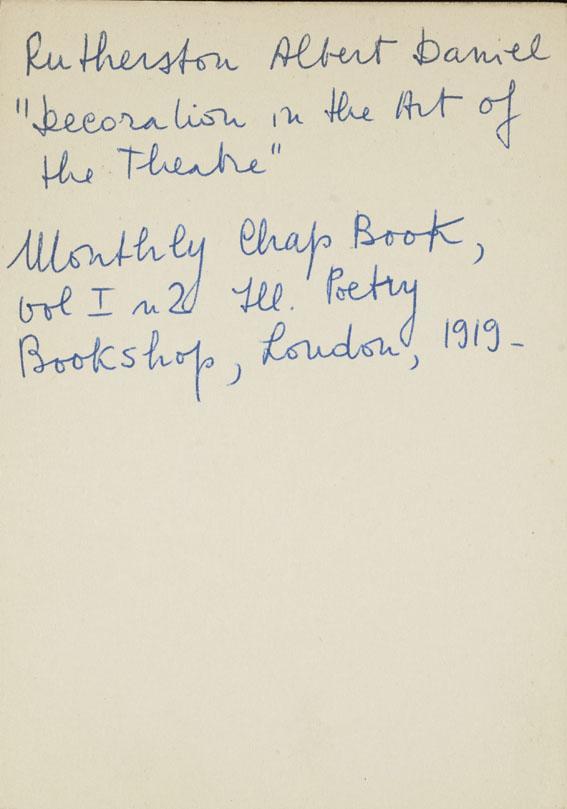 Rutherston Albert Daniel
"Decoration in the Art of
the Theatre"
Monthly Chap Book,
vol I n2 Ill. Poetry
Bookshop, London, 1919-